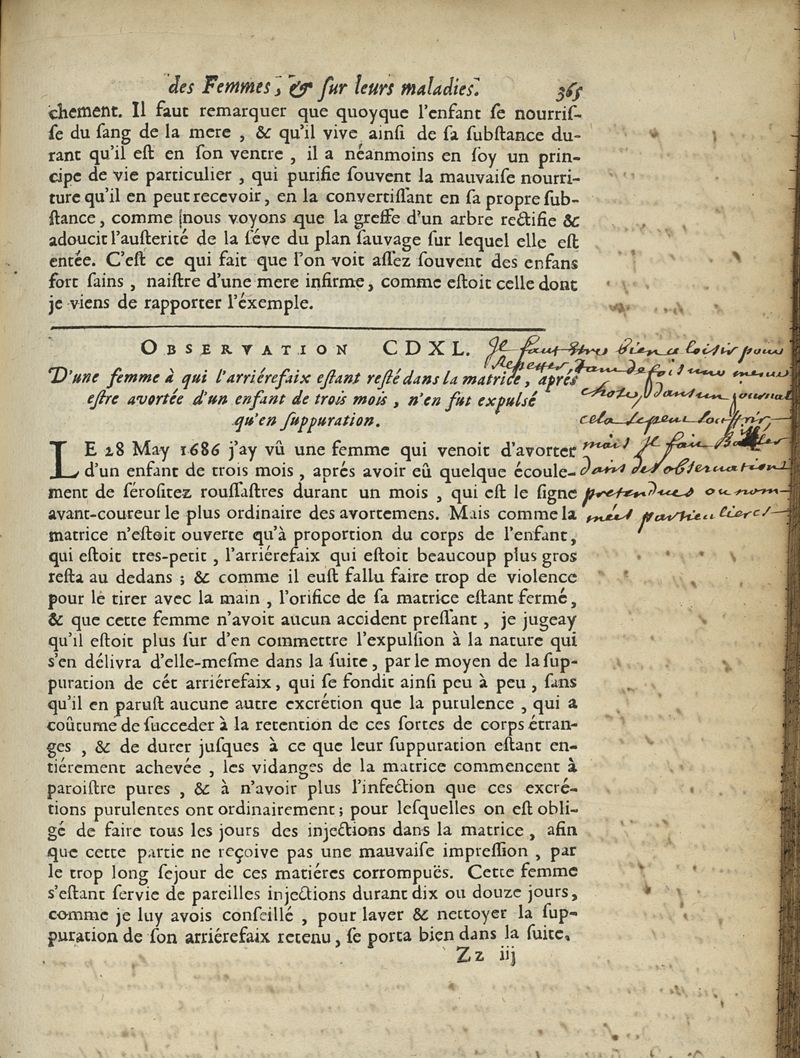 des Femmes, & ſur leurs maladies. 365
chement. Il faut remarquer que quoyque l'enfant ſe nourriſ-
ſe du ſang de la mere, & qu'il vive ainſi de ſa ſubſtance du-
rant qu'il eſt en ſon ventre, il a néanmoins en ſoy un prin-
cipe de vie particulier, qui purifie ſouvent la mauvaiſe nourri-
ture qu'il en peut recevoir, en la convertiſſant en ſa propre ſub-
ſtance, comme [nous voyons que la greffe d'un arbre rectifie &
adoucit l'auſterité de la ſéve du plan ſauvage ſur lequel elle eſt
entée. C'eſt ce qui fait que l'on voit aſſez ſouvent des enfans
fort ſains, naiſtre d'une mere infirme, comme eſtoit celle dont
je viens de rapporter l'éxemple.
OBSERVATION CDXL.
D'une femme à qui l'arriérefaix eſtant reſté dans la matrice, aprés
eſtre avortée d'un enfant de trois mois, n'en fut expulsé
qu'en ſuppuration.
LE 28 May 1686 j'ay vû une femme qui venoit d'avorter
d'un enfant de trois mois, aprés avoir eû quelque écoule-
ment de féroſitez rouſſaſtres durant un mois, qui eſt le ſigne
avant-coureur le plus ordinaire des avortemens. Mais comme la
matrice n'eſtoit ouverte qu'à proportion du corps de l'enfant,
qui eſtoit tres-petit, l'arriérefaix qui eſtoit beaucoup plus gros
reſta au dedans; & comme il euſt fallu faire trop de violence
pour le tirer avec la main, l'orifice de ſa matrice eſtant fermé,
& que cette femme n'avoit aucun accident preſſant, je jugeay
qu'il eſtoit plus ſur d'en commettre l'expulſion à la nature qui
s'en délivra d'elle-meſme dans la ſuite, par le moyen de la ſup-
puration de cét arriérefaix, qui ſe fondit ainſi peu à peu, ſans
qu'il en paruſt aucune autre excrétion que la purulence, qui a
coûtume de ſucceder à la retention de ces ſortes de corps étran-
ges, & de durer juſques à ce que leur ſuppuration eſtant en-
tiérement achevée, les vidanges de la matrice commencent à
paroiſtre pures, & à n'avoir plus l'infection que ces excré-
tions purulentes ont ordinairement; pour leſquelles on eſt obli-
gé de faire tous les jours des injections dans la matrice, afin
que cette partie ne reçoive pas une mauvaiſe impreſſion, par
le trop long ſejour de ces matiéres corrompuës. Cette femme
s'eſtant ſervie de pareilles injections durant dix ou douze jours,
comme je luy avois conſeillé, pour laver & nettoyer la ſup-
puration de ſon arriérefaix retenu, ſe porta bien dans la ſuite.
Zz iij
Il faut être bien a loisir pour
repetter tant de fois une meme
chose, dans un journal
cela se peut souffrir,
mais
dans des observations
pretendues ou nom-
mées particulieres